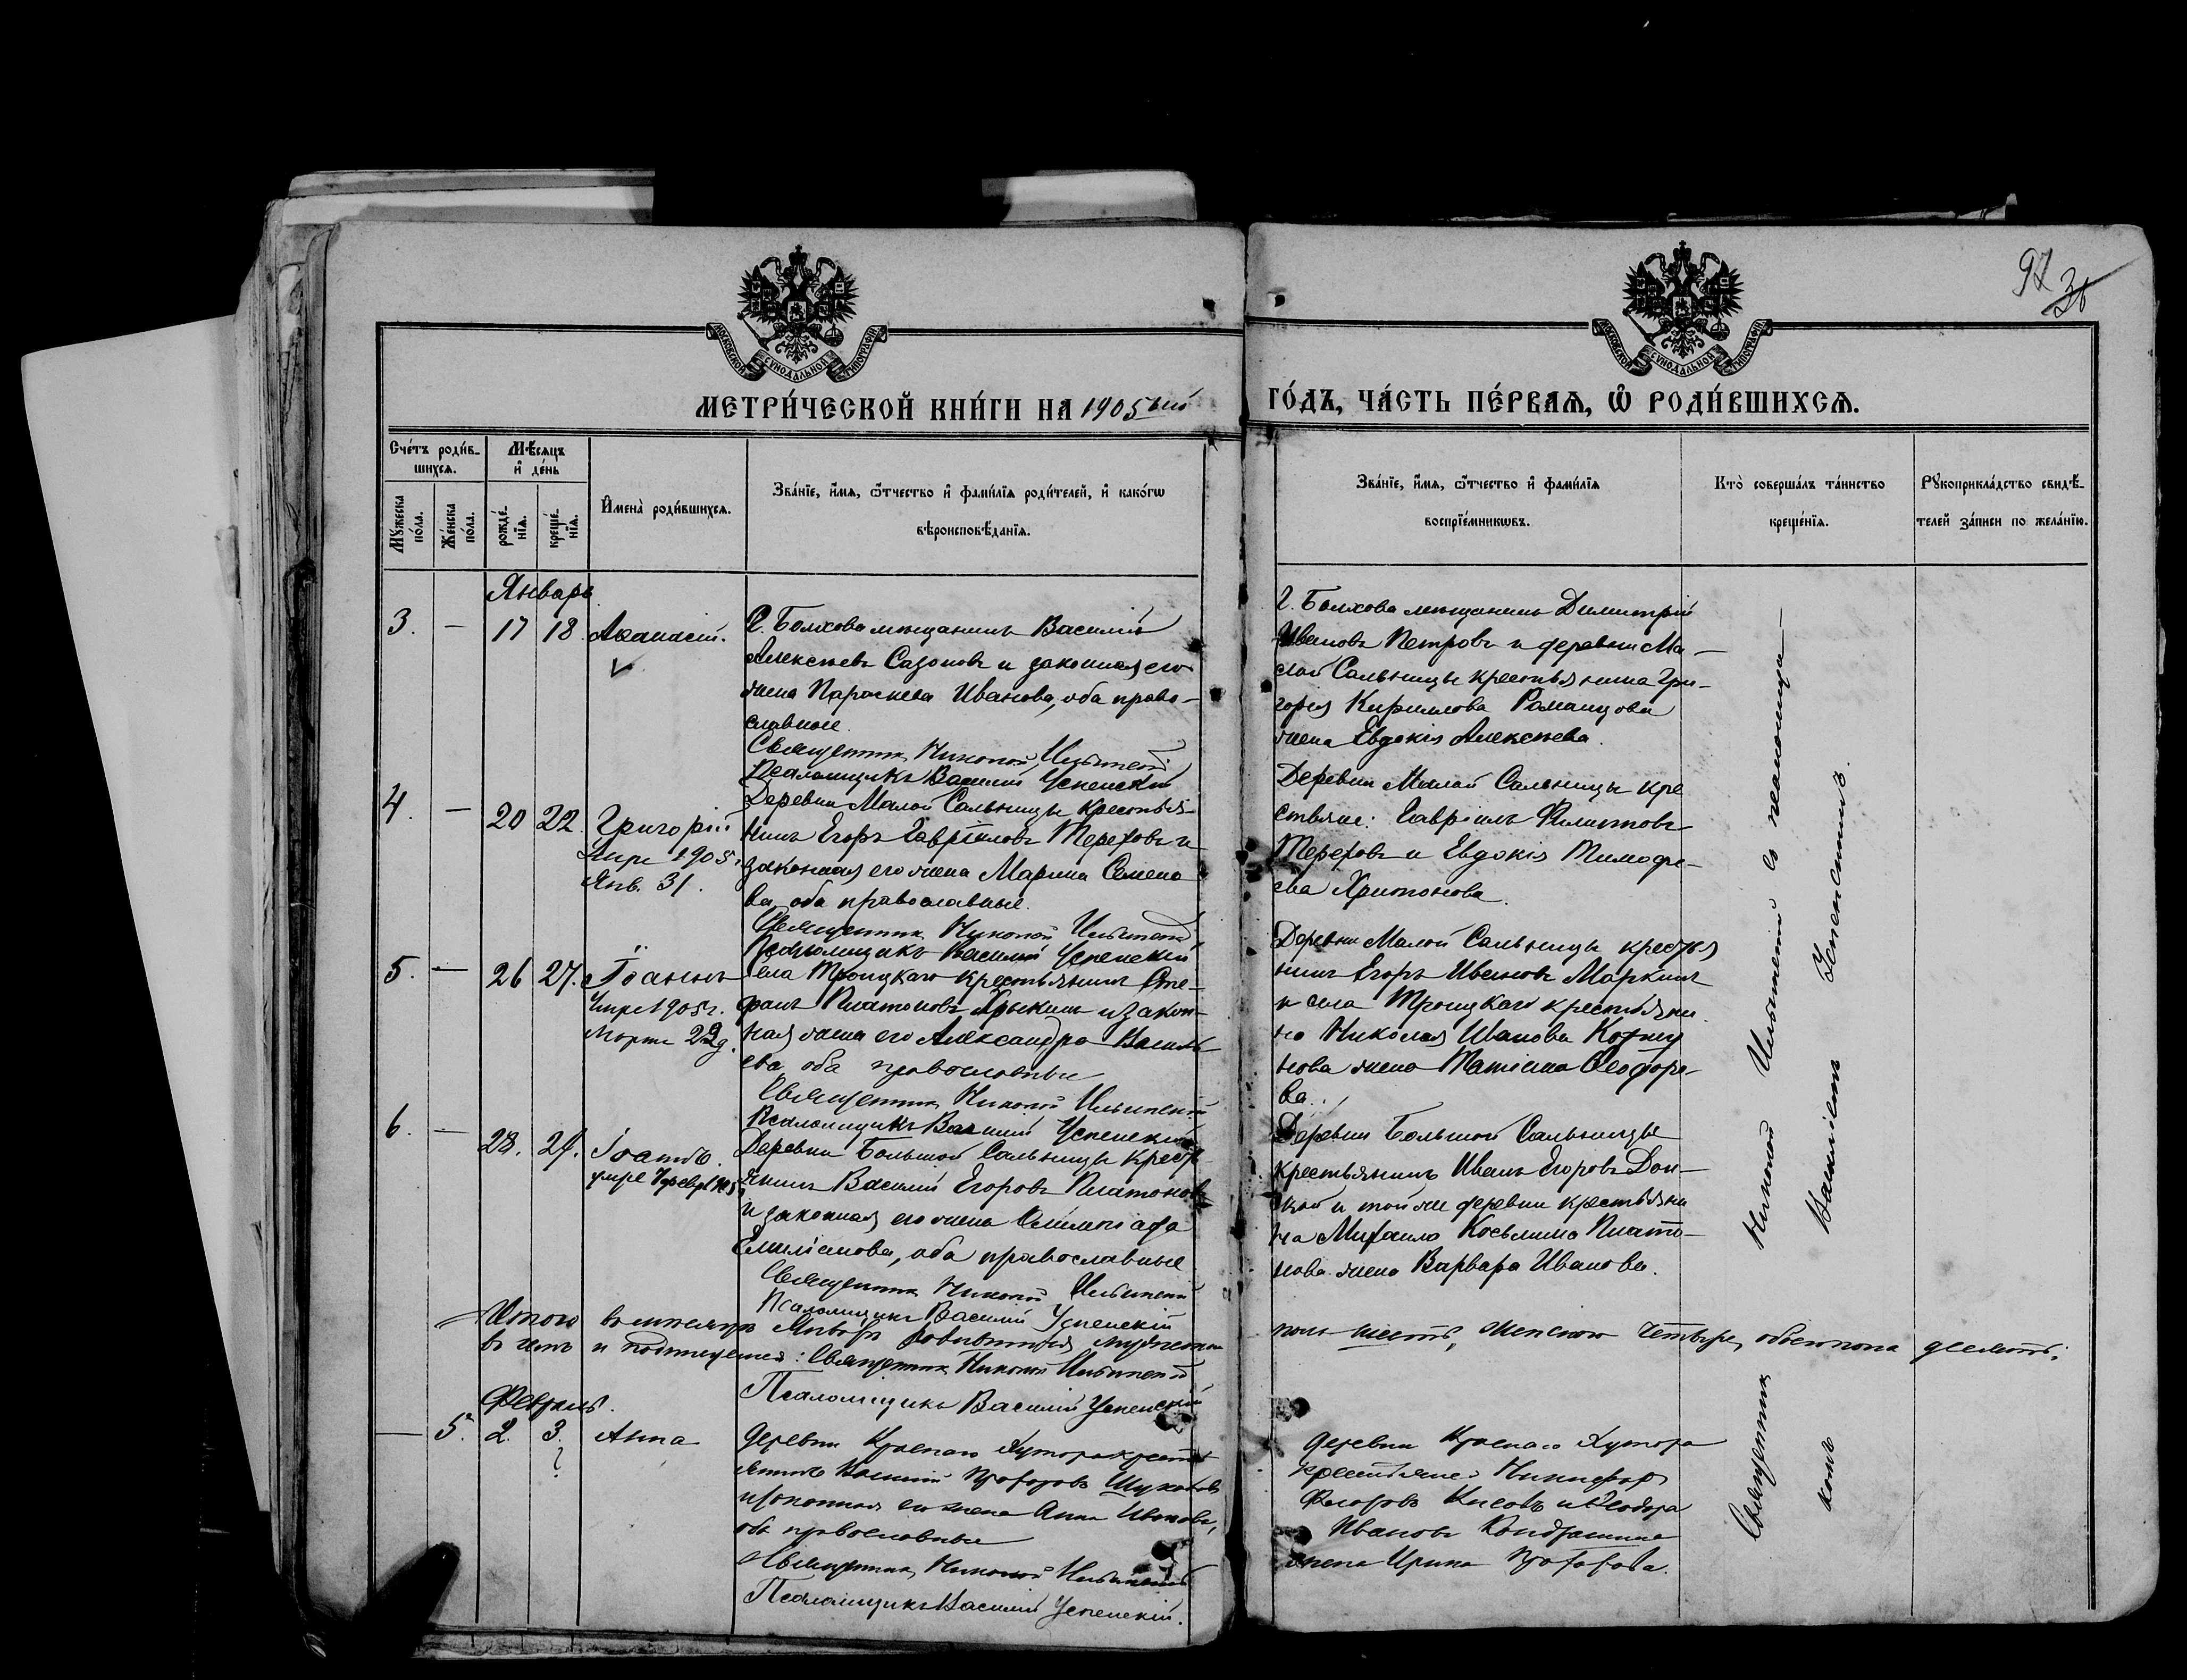 97 36
МОСКОВСКОЙ СѴНОДАЛЬНОЙ ТИПОГРАФІИ
МОСКОВСКОЙ СѴНОДАЛЬНОЙ ТИПОГРАФІИ
МЕТРИ́ЧЕСКОЙ КНИ́ГИ НА 1905ый ГО́ДЪ, ЧА́СТЬ ПЕ́РВАѦ, Ѡ҆ РОДИ́ВШИХСѦ.
Сче́тъ роди́в-
шихсѧ.
Мꙋжеска по́ла.
Же́нска по́ла.
Мѣ́сѧцъ
и҆ де́нь
рожде́-
нїѧ.
креще́-
нїѧ.
И҆мена̀ роди́вшихсѧ.
Зва́нїе, и҆́мѧ, ѻ҆́тчество и҆ фами́лїѧ роди́телей, и҆ како́гѡ
вѣроисповѣ́данїѧ.
Зва́нїе, и҆́мѧ, ѻ҆́тчество и҆ фами́лїѧ
воспрїе́мникѡвъ.
Кто̀ соверша́лъ та́инство
креще́нїѧ.
Рꙋкоприкла́дство свидѣ́-
телей за́писи по жела́нїю.
Январь
3. — 17 18 Аѳанасій.
Г. Болхова мѣщанинъ Василій
Алексѣевъ Сазоновъ и законная его
жена Параскева Иванова, оба право-
славные.
Священникъ Никонъ Ильинскій
Псаломщикъ Василій Успенскій
Г. Болхова мѣщанинъ Димитрій
Ивановъ Петровъ и деревни Ма-
лой Сальницы крестьянина Гри-
горія Кириллова Романцова
жена Евдокія Алексѣева.
4. — 20 22 Григорій
Умре 1905.
Янв. 31.
Деревни Малой Сальницы крестья-
нинъ Егоръ Гавріиловъ Тереховъ и
законная его жена Марина Семено
ва, оба православные.
Священникъ Ильинскій
Псаломщикъ Василій Успенскій
Деревни Малой Сальницы кре
стьяне: Гавріилъ Филиповъ
Тереховъ и Евдокія Тимофе-
ева Харитонова.
5. — 26 27. Іоаннъ
Умре 1905 г.
Марта 22 д.
Села Троицкаго крестьянинъ Сте-
фанъ Платоновъ и закон-
ная жена его Александра Василь-
ева оба православные
Священникъ Ильинскій
Псаломщикъ Василій Успенскій
Деревни Малой Сальницы крестья
нинъ Егоръ Ивановъ Маркинъ
и села Троицкаго крестьяни
на Николая Иванова
жена Татіана Ѳеодоро-
ва.
6. — 28. 29. Іоаннъ.
умре
Деревни Большой Сальницы кресть
янинъ Василій Егоровъ Платоновъ
и законная его жена Олимпіада
Емиліанова, оба православные
Священникъ Ильинскій
Псаломщикъ Василій Успенскій
Деревни Большой Сальницы
крестьянинъ Иванъ Егоровъ Дон-
ской и той же деревни крестьяни
на Михаила Косьмина Плато-
нова жена Варвара Иванова.
Итого въ мѣсяцѣ Январѣ родившихся мужескаго
пола шесть, женскаго четыре, обоего пола десять,
въ чемъ и подпишемся: Священникъ Ильинскій
Псаломщикъ Василій Успенскій
Февраль.
— 5. 2. 3. Анна
Деревни Краснаго Хутора крестья
янинъ Василій
и законная его жена Анна Иванова,
оба православные
Священникъ Ильинскій
Псаломщикъ Василій Успенскій.
Деревни Краснаго Хутора
крестьяне: Никифоръ
Ѳеодора
Иванова
жена Ирина
Священникъ Ильинскій съ псаломщи-
комъ Василіемъ Успенскимъ.